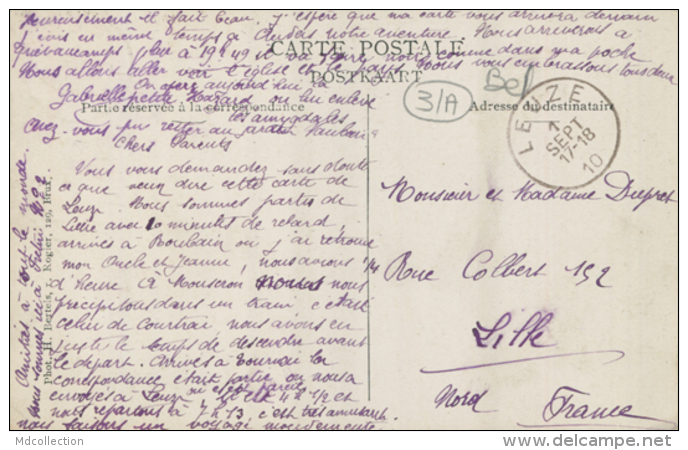 heureusement il fait beau. J'espère que ma carte vous arrivera demain
j'écris en même temps à notre aventure. Nous arriverons à
à 19 h 49 comme dans ma poche
Nous allons aller voir l'église et le Nous vous embrassons tous deux
On opère aujourd'hui la
Gabrielle petite ou lui enlève
les amygdales
Avez-vous pu rester au jardin Vauban ?
CARTE POSTALE
POSTKAART
Partie réservée à la correspondance
Adresse du destinataire
3/A
Bel
LEUZE
1
SEPT
17-18
10
Chers Parents
Vous vous demandez sans doute
ce que veux dire cette carte de
Leuze. Nous sommes partis de
Lille avec 10 minutes de retard,
arrivés à où j'ai retrouvé
mon Oncle et Jeanne, nous avions 1/4
d'heure à Mouscron nous nous
précipitons dans un train c'était
celui de Courtrai, nous avons eu
juste le temps de descendre avant
le départ. Arrivés à Tournai la
correspondance était partie on nous a
envoyés à Leuze où il est 4 h 1/2 et
nous repartons à 7 h 13. c'est très amusant
nous faisons un voyage mouvementé.
Amitiés à tout le monde.
nous sommes ici à
Phot. H. Bertels, r. Rogier, 129, Brux.
Monsieur et Madame
Rue Colbert 152
Lille
Nord France
Mdcollection
delcampe.net